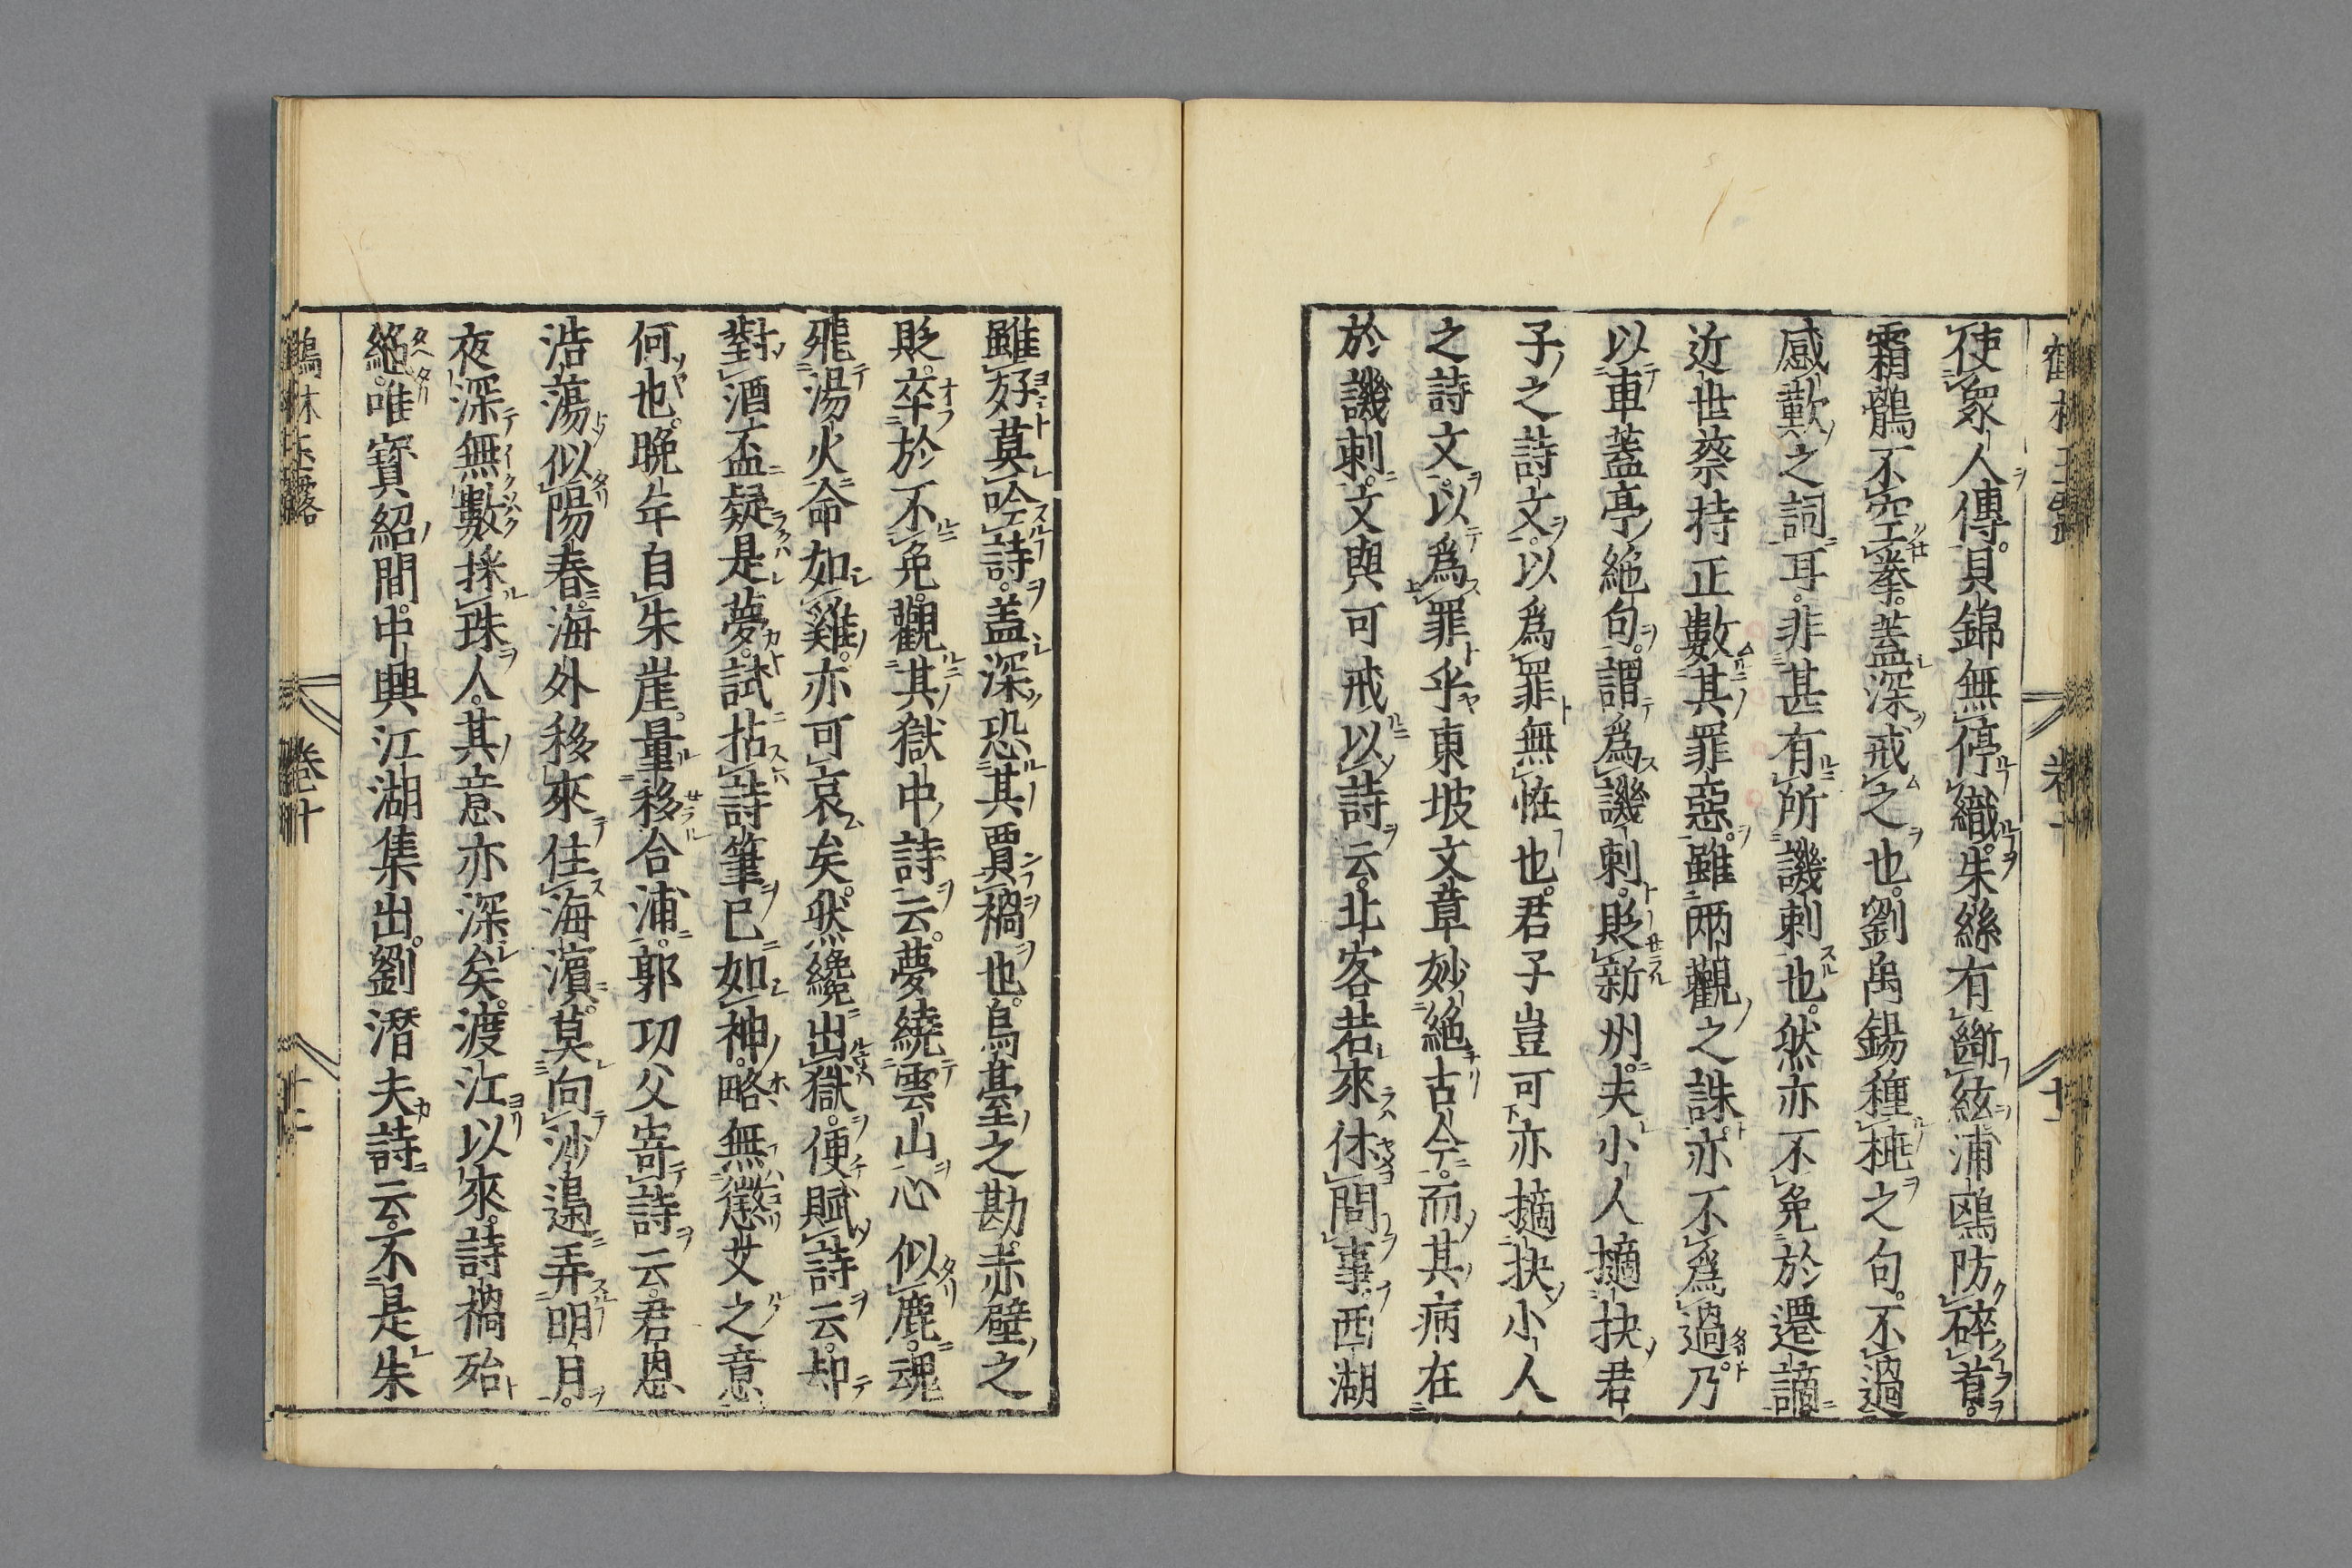 使衆人傳。貝錦無停織。朱絲有斷絃。浦鷗防碎首。
霜鶻不空拳。蓋深戒之也。劉禹錫種桃之句。不過
感歎之詞耳。非甚有所譏刺也。然亦不免於遷謫
近世蔡持正數其罪惡。雖兩觀之誅。亦不爲過。乃
以車蓋亭絶句。謂爲譏刺。貶新州。夫小人擿抉君
子之詩文。以爲罪無恠也。君子豈可亦擿抉小人
之詩文。以爲罪乎。東坡文章妙絶古今。而其病在
於譏刺。文與可戒以詩云。北客若來休問事。西湖
雖好莫吟詩。盖深恐其賈禍也。烏臺之勘。赤壁之
貶。卒於不免。觀其獄中詩云。夢繞雲山心似鹿。魂
飛湯火命如雞。亦可哀矣。然纔出獄。便賦詩云。却
對酒盃疑是夢。試拈詩筆已如神。略無懲艾之意
何也。晩年自朱崖。量移合浦。郭功父寄詩云。君恩
浩蕩似陽春。海外移來住海濱。莫向沙邊弄明月。
夜深無數採珠人。其意亦深矣。渡江以來。詩禍殆
絶。唯寳紹間。中興江湖集出。劉潛夫詩云。不是朱
鶴林玉露
卷十
十二